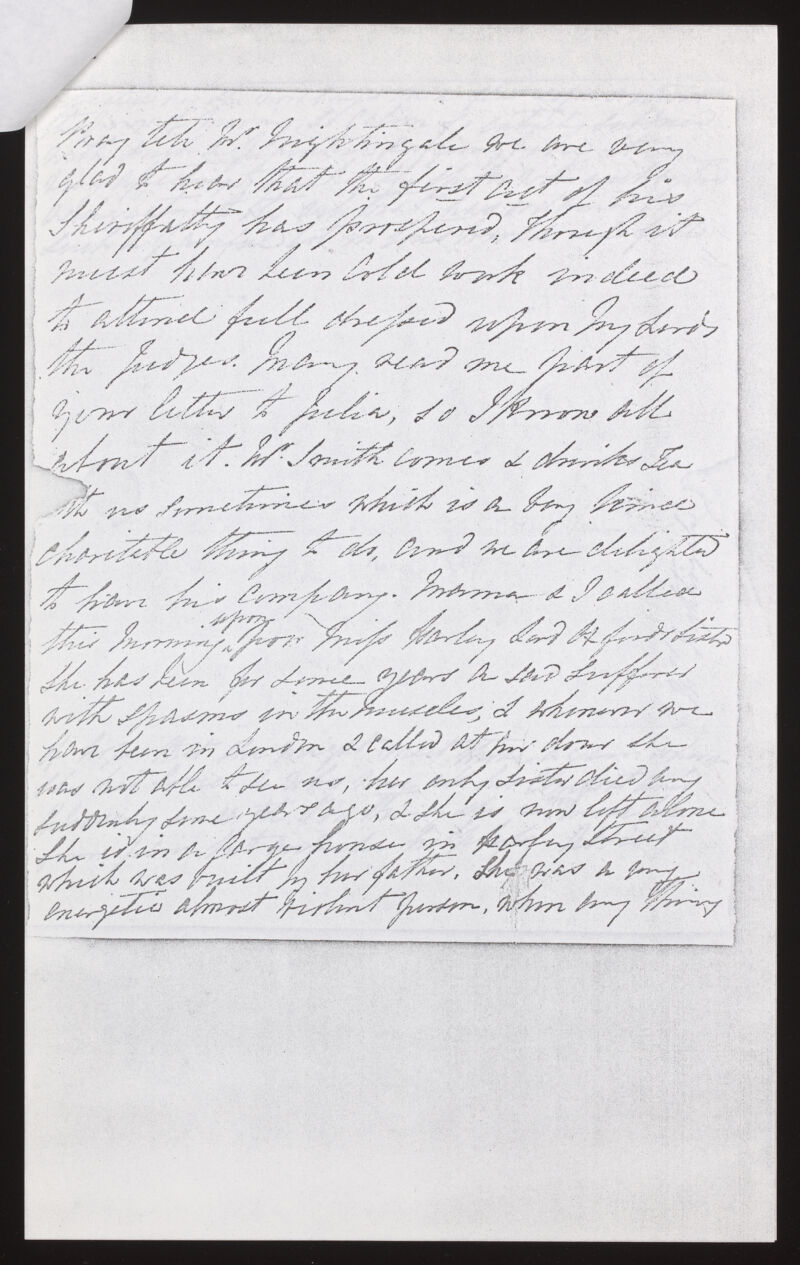 Pray tell Mr. Nightingale we are very
glad to hear that the first act of his
Shiriffalty has prospered, though it
must have been cold work indeed
to attend full dressed upon My Lords
the Judges. Mary read me part of
your letter to Julia, so I know all
about it. Mr. Smith comes & drinks Tea
with us sometimes which is a very kind
charitable thing to do, and we are delighted
to have his company. Mama & I called
this morning upon poor Miss Harley Lord Oxfords Sister
She has been for some years a sad sufferer
with spasms in the muscles, & whenever we
have been in London & called at her door she
was not able to see us, her only sister died very
suddenly some years ago, & she is now left alone
She is in a large house in Harley Street
which was built by her father. She was a very
energetic almost violent person, when any thing